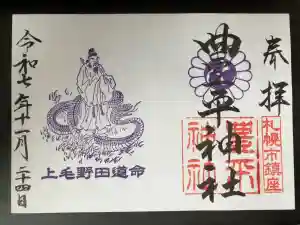 奉拝
札幌市鎮座
豊平神社
豊平
神社
上毛野田道命
令和七年十一月二十四日